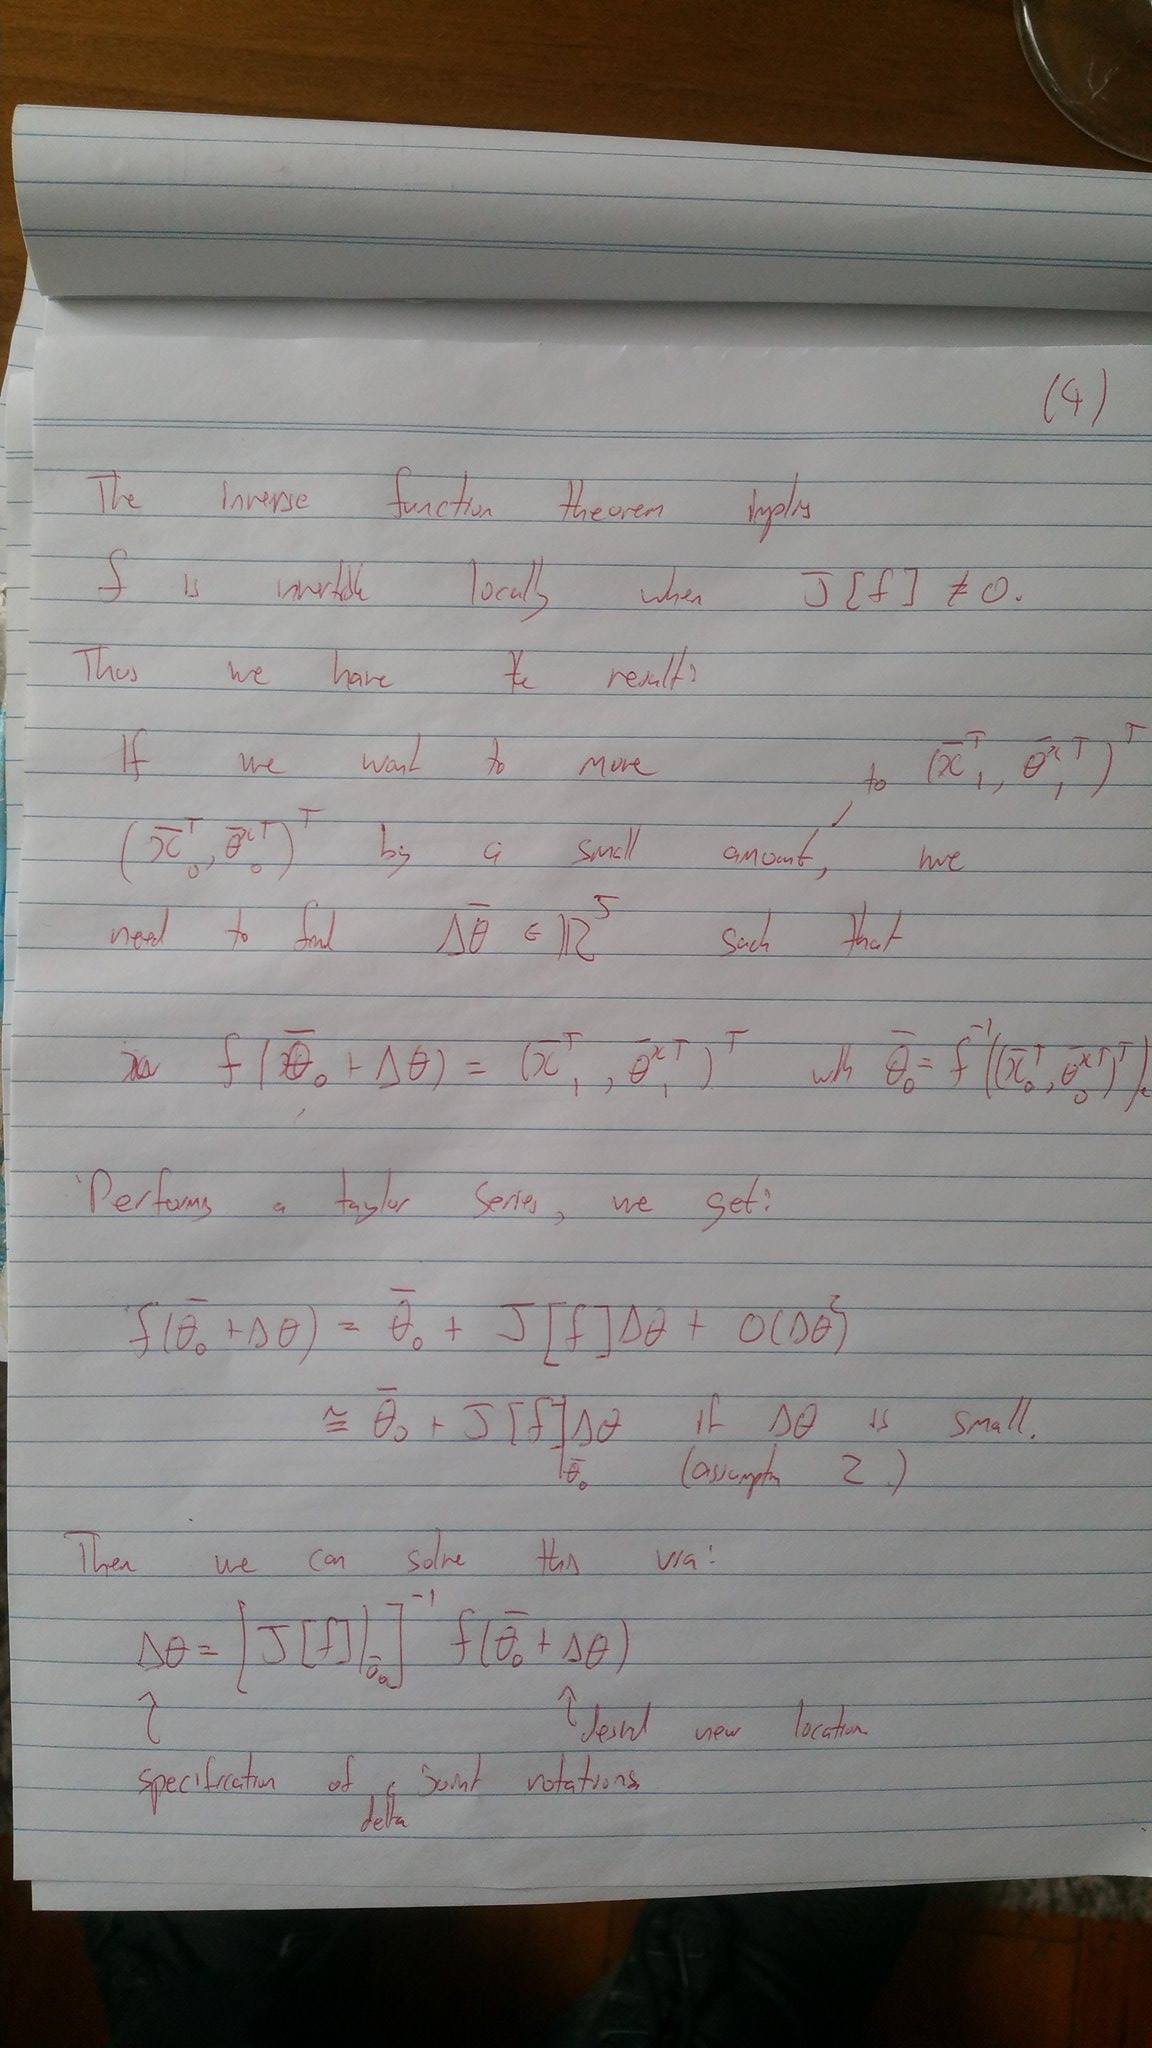 (4)
The inverse function theorem implys
f is invertible locally when J[f] ≠ 0.
Thus we have the result:
If we want to move to (x̄₁ᵀ, θ̄₁ˣᵀ)ᵀ
(x̄₀ᵀ, θ̄₀ˣᵀ)ᵀ by a small amount, we
need to find Δθ̄ ∈ ℝ⁵ such that
f(θ̄₀ + Δθ) = (x̄₁ᵀ, θ̄₁ˣᵀ)ᵀ with θ̄₀ = f⁻¹((x̄₀ᵀ, θ̄₀ˣᵀ)ᵀ).
Performing a taylor series, we get:
f(θ̄₀ + Δθ) = θ̄₀ + J[f]Δθ + O(Δθ²)
≅ θ̄₀ + J[f]|θ̄₀ Δθ if Δθ is small.
(assumption 2.)
Then we can solve this via:
Δθ = [J[f]|θ̄₀]⁻¹ f(θ̄₀ + Δθ)
↑ ↑ desired new location
specification of delta joint rotations